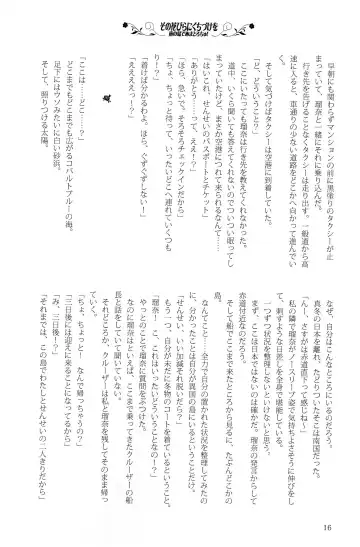 その花びらにくちづけを
早朝にも関わらずマンションの前に黒塗りのタクシーが止
まっていて、瑠奈と一緒にそれに乗り込んだ。
行き先を告げることなくタクシーは走り出す。一般道から高
速に入ると、車通りの少ない道路をどこかへ向かって進んでい
く。
道中、いくら聞いても瑠奈は行き先を教えてくれなかった。
そして気づけばタクシーは空港に到着していた。
「ど、どういうこと!?」
まっていたけど、まさか空港につれて来られるなんて……
いくら聞いても答えてくれないのでついつい眠ってし
「はいこれ、せんせいのパスポートとチケット」
「ありがとう？　……って、ええっ!?」
「ほら、急いで。そろそろチェックインだから」
「ちょ、ちょっと待って、いったいどこへ連れていくつも
り!?」
「着けば分かるわよ。ほら、ぐずぐずしない！」
「えええっ！？」
「ここは……どこ……？」
どこまでもどこまでも広がるコバルトブルーの海。
足下にはウソみたいに白い砂浜。
そして、照りつける太陽。
なぜ、自分はこんなところにいるのだろう。
真冬の日本を離れ、たどりついたそこは南国だった。
「んー、さすがは赤道直下って感じね〜」
私の隣で瑠奈がノースリーブ姿で気持ちよさそうに伸びをし
て、刺すような日差しを全身で堪能している。
一つずつ状況を整理しないといけないと思う。
まず、ここは日本ではないのは確かだ。瑠奈の発言からして
赤道付近なのだろう。
そして船でここまで来たところから見るに、たぶんどこかの
島。
なんてこと……全力で自分の置かれた状況を整理してみたの
に、分かったことは自分が異国の島にいるということだけ。
「せんせい、いい加減それ脱いだら？」
もう一つ、自分が未だに冬物のコートを着ているということ。
「瑠奈！　こ、これはいったいどういうことなの!?」
やっとのことで瑠奈に質問をぶつけた。
なのに瑠奈はといえば、ここまで乗ってきたクルーザーの船
長と話をしていて聞いていない。
それどころか、クルーザーは私と瑠奈を残してそのまま帰っ
ていく。
「ちょ、ちょっと！　なんで帰っちゃうの!?」
「三日後に迎えに来ることになってるから」
「み、三日後!?」
「それまでは、この島でわたしとせんせいの二人きりだから」
16